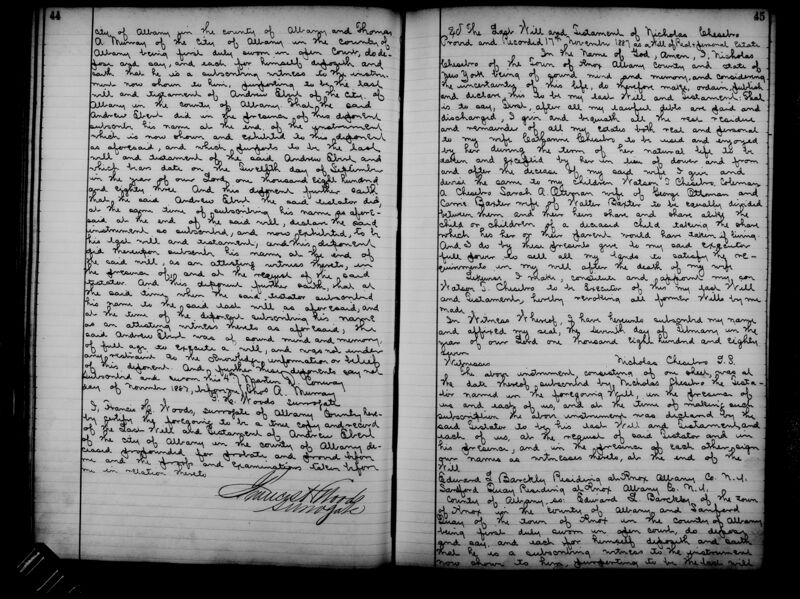 44
city of Albany in the county of Albany and Thomas
A. Murray of the City of Albany in the county of
Albany being first duly sworn in open Court, do de-
pose and say, and each for himself deposeth and
saith that he is a subscribing witness to the instru-
ment now shown to him, purporting to be the last
will and testament of Andrew Ebert of the City of
Albany in the county of Albany. That the said
Andrew Ebert did in the presence of this deponent
subscribe his name at the end of the instrument
which is now shown and exhibited to this deponent
as aforesaid, and which purports to be the last
will and testament of the said Andrew Ebert and
which bears date on the twelfth day of September
in the year of our Lord one thousand eight hundred
and eighty three. And this deponent further saith
that he, the said Andrew Ebert the said testator did,
at the same time of subscribing his name as afore-
said at the end of the said will, declare the said
instrument so subscribed, and now exhibited, to be
his last will and testament, and this deponent
did thereupon subscribe his name at the end of
the said will, as an attesting witness thereto, in
the presence of and at the request of the said
testator. And this deponent further saith, that at
the said time, when the said testator subscribed
his name to the said last will as aforesaid, and
at the time of the deponent subscribing his name
as an attesting witness thereto as aforesaid, the
said Andrew Ebert was of sound mind and memory,
of full age to execute a will, and was not under
any restraint to the knowledge, information or belief
of this deponent. And further these deponents say not
Subscribed and sworn this 4th Martin D. Conway
day of November 1887, before me Thos A. Murray
F. H. Woods Surrogate
I, Francis H. Woods, Surrogate of Albany County here-
by certify the foregoing to be a true copy and record
of the Last Will and Testament of Andrew Ebert
of the city of Albany in the county of Albany, de-
ceased propounded for probate and proved before
me and the proofs and examinations taken before
me in relation thereto
Francis H Woods
Surrogate
45
Of The Last Will and Testament of Nicholas Chesebro
Proved and Recorded 17th November 1887 as a Will of Real & Personal Estate
In the Name of God, Amen, I, Nicholas
Chesebro of the Town of Knox Albany County and State of
New York being of sound mind and memory, and considering
the uncertainty of this life, do therefore make, ordain, publish
and declare, this to be my last Will and Testament: That
is to say, First, after all my lawful debts are paid and
discharged, I give and bequeath all the rest residue
and remainder of all my estates both real and personal
to my wife Chesebro to be used and enjoyed
by her during the term of her natural life to be
taken and accepted by her in lieu of dower and from
and after the decease of my said wife I give and
devise the same to my children Watson J. Chesebro, Coleman
A Chesebro Sarah A Ottman wife of George Ottman and
Carrie Baxter wife of Walter Baxter to be equally divided
between them and their heirs share and share alike the
child or children of a deceased child taking the share
which his or their parent would have taken if living.
And I do by these presents give to my said executor
full power to sell all my lands to satisfy the re-
quirements in my will after the death of my wife
Likewise I make, constitute and appoint my son
Watson J. Chesebro to be Executor of this my last Will
and Testament, hereby revoking all former Wills by me
made.
In Witness Whereof, I have hereunto subscribed my name
and affixed my seal, the seventh day of February in the
year of our Lord one thousand eight hundred and eighty
seven
Witnesses Nicholas Chesebro L.S.
The above instrument, consisting of one sheet, was at
the date thereof subscribed by Nicholas Chesebro the testa-
tor named in the foregoing Will, in the presence of
us and each of us, and at the time of making such
subscription the above instrument was declared by the
said testator to be his last Will and Testament, and
each of us, at the request of said testator and in
his presence, and in the presence of each other, sign
our names as witnesses hereto, at the end of the
Will
Edward L Barckley Residing at Knox Albany Co. N.Y.
Sanford Quay Residing at Knox Albany Co. N.Y.
County of Albany, ss: Edward L Barckley of the town
of Knox in the county of Albany and Sanford
Quay of the town of Knox in the County of Albany
being first duly sworn in open court, do depose
and say, and each for himself deposeth and saith
that he is a subscribing witness to the instrument
now shown to him, purporting to be the last will